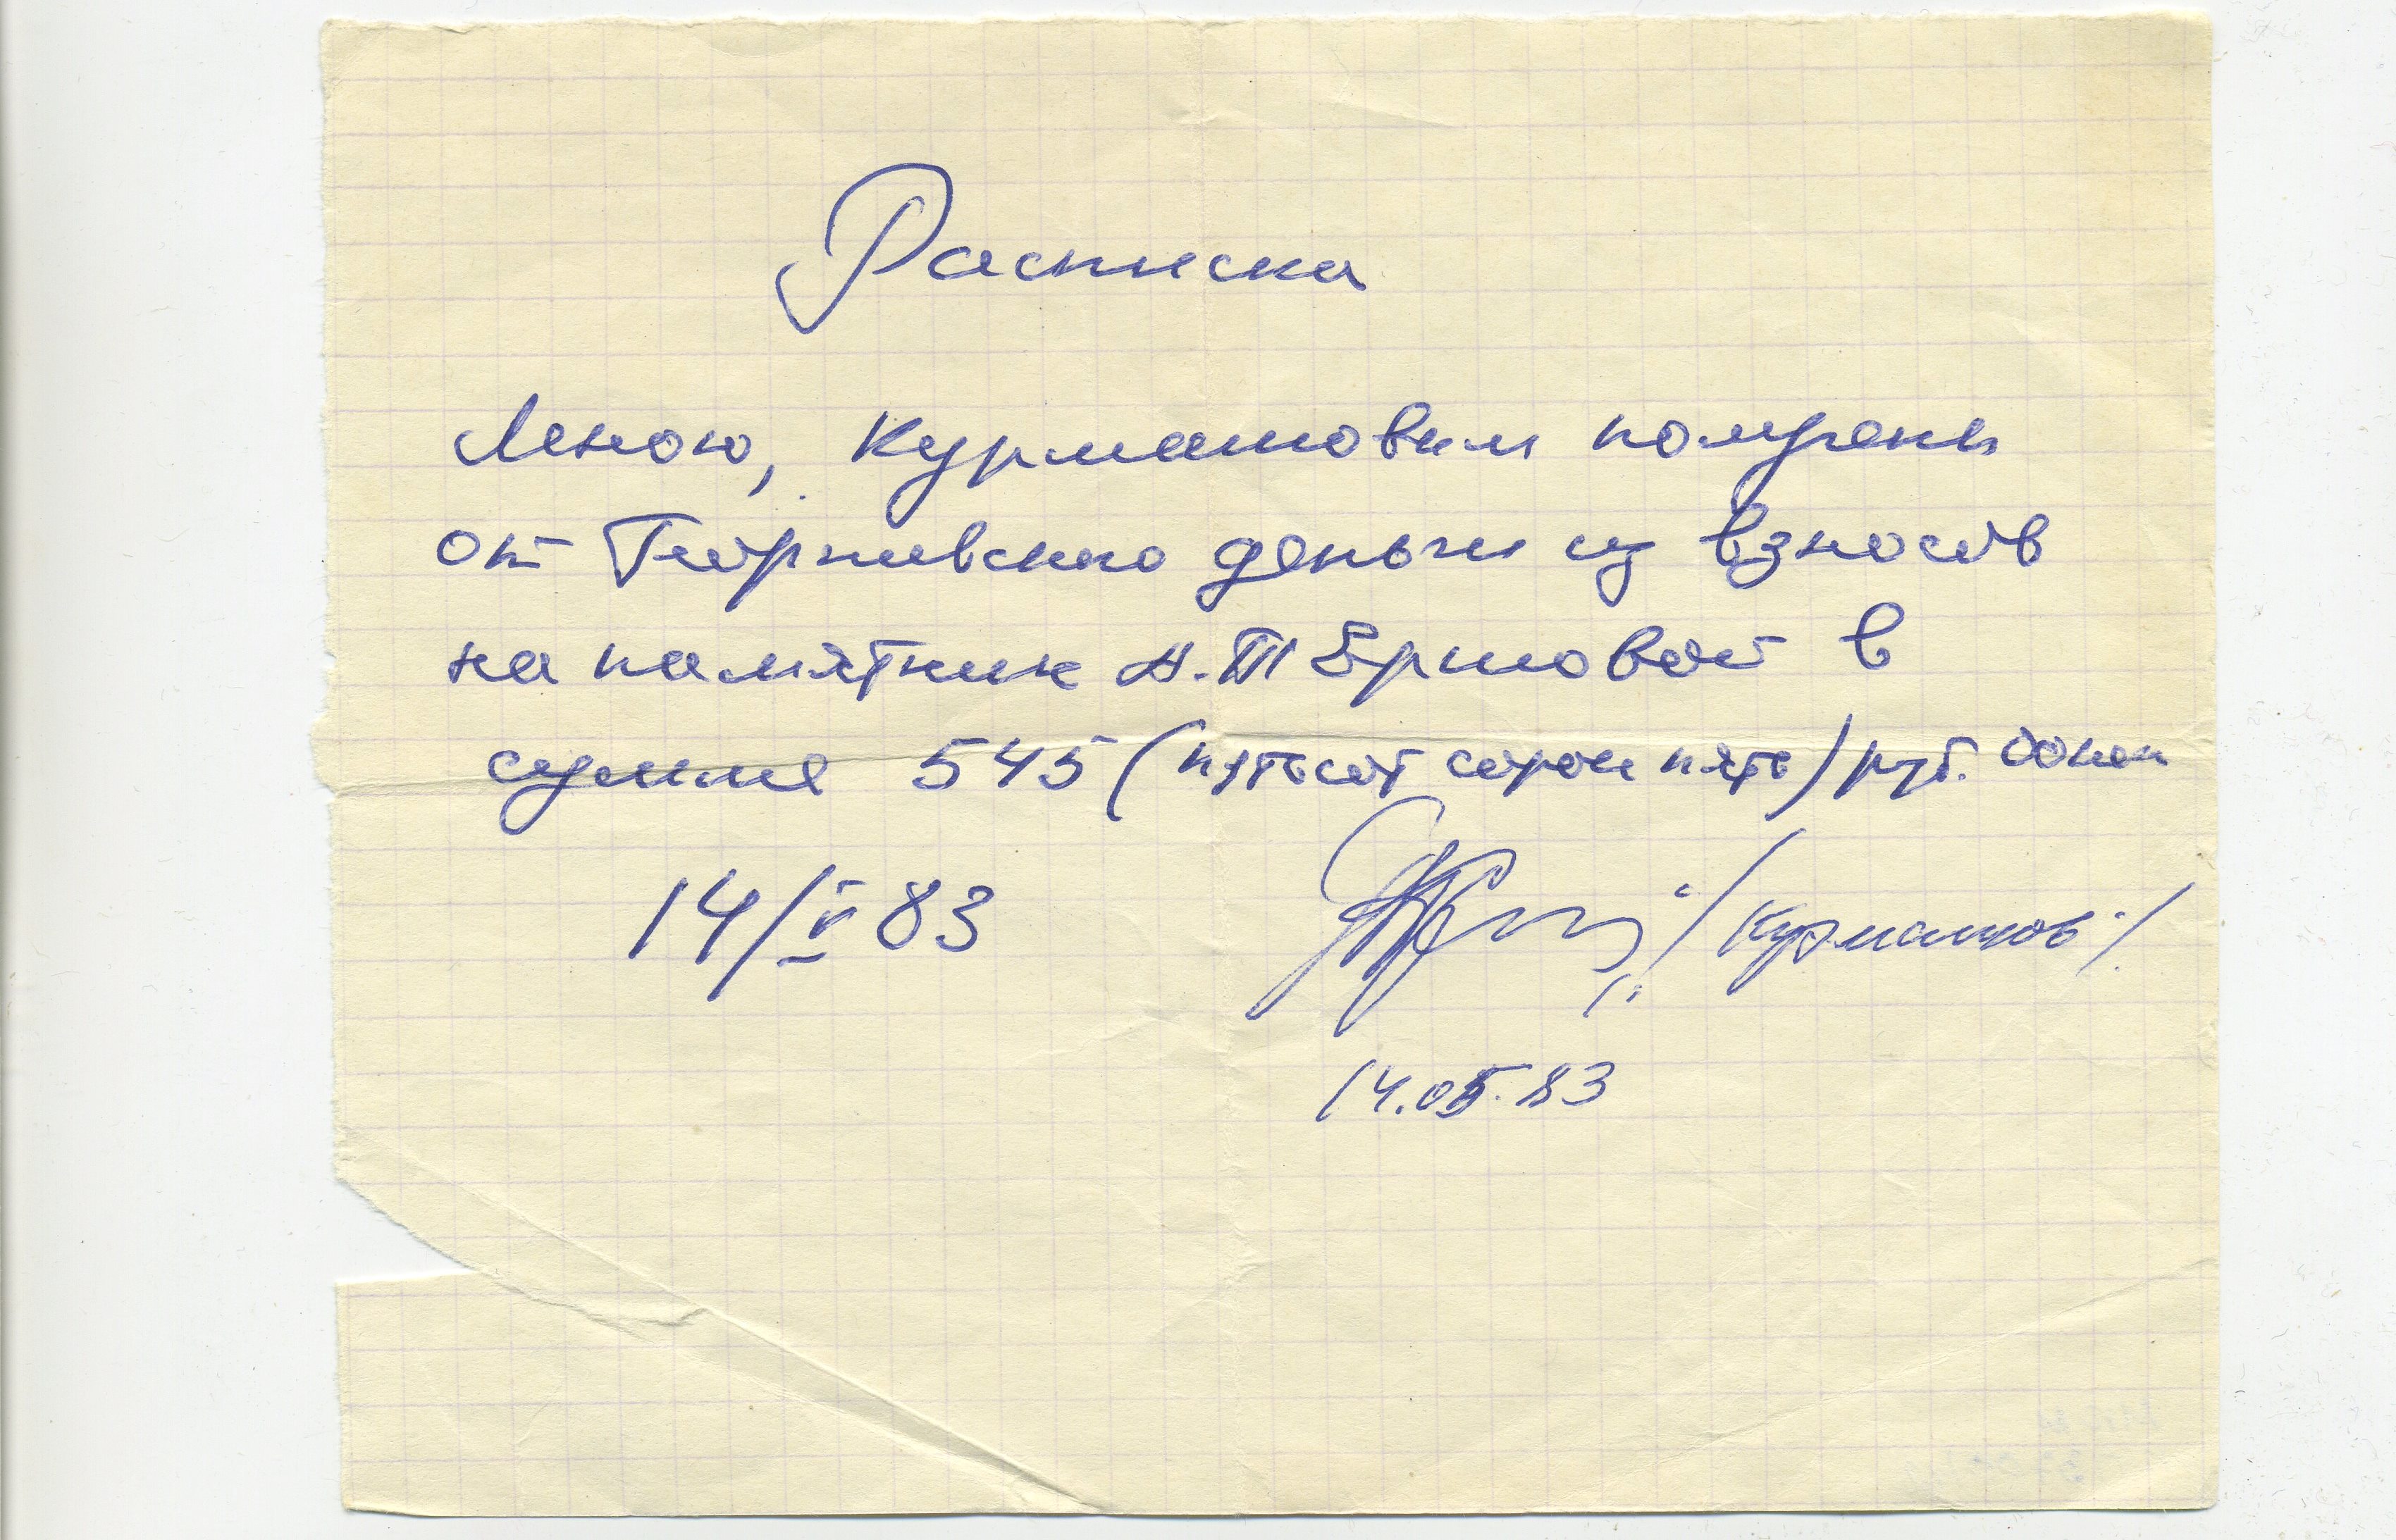 Расписка
Мною, Курматовым получены
от Георгиевского деньги из взносов
на памятник А.Т Ершовой в
сумме 545 (пятьсот сорок пять) руб. 00 коп
14/V 83
/Курматов/
14.05.83